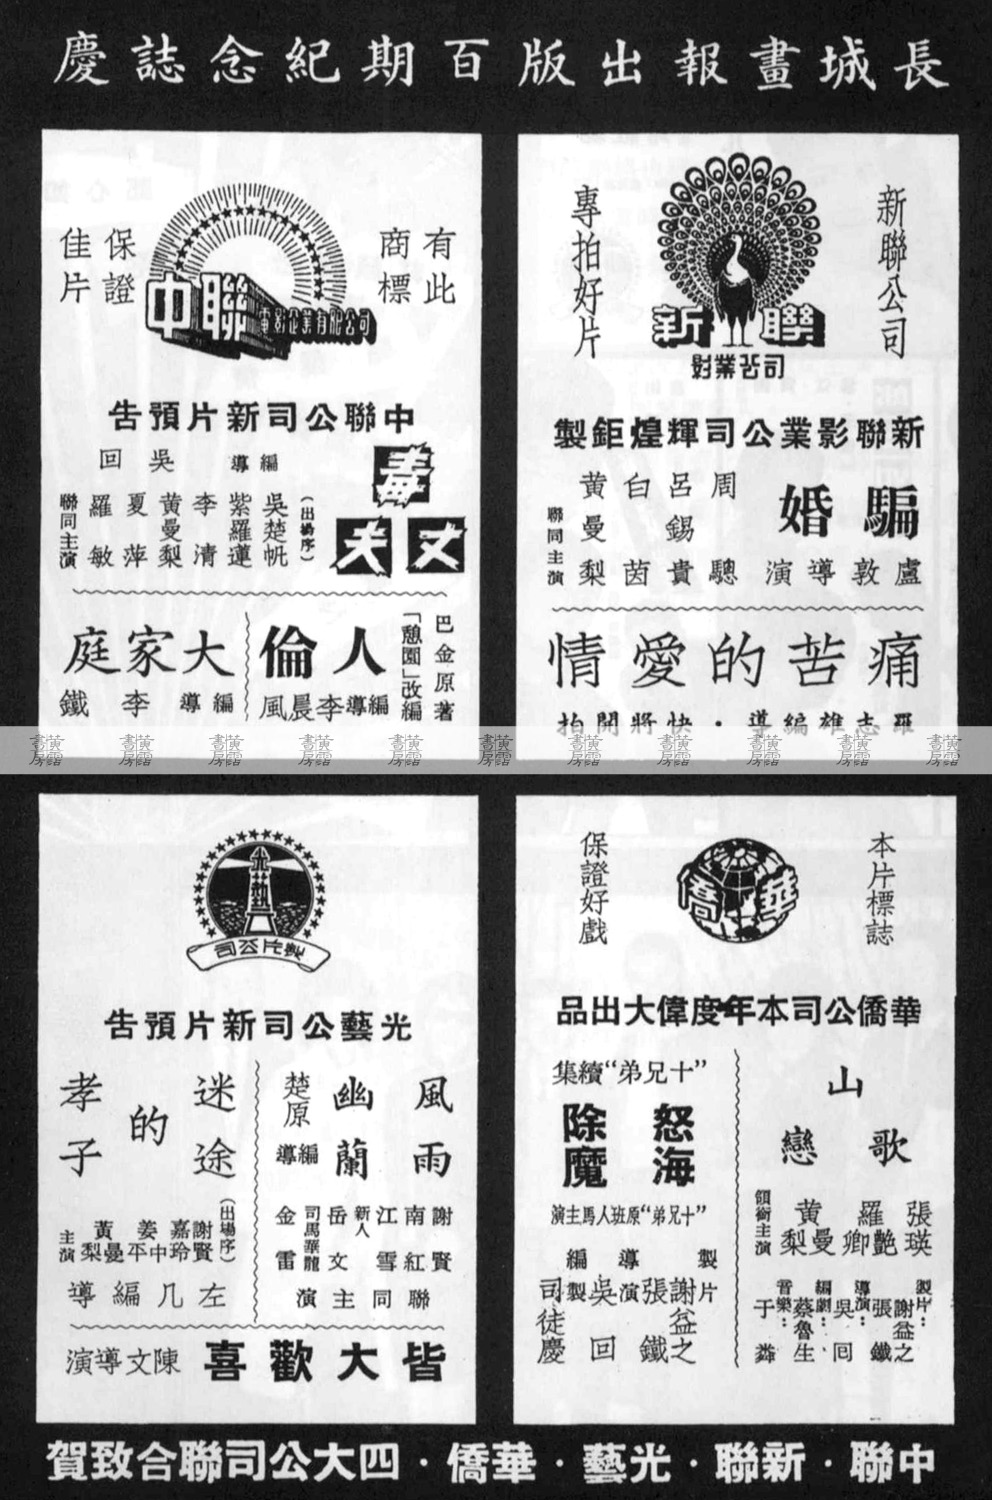 長城畫報出版百期紀念誌慶
新聯公司
專拍好片
新聯
影業公司
新聯影業公司輝煌鉅製
騙婚
盧敦導演
周驄
呂錫貴
白茵
黃曼梨
聯同主演
痛苦的愛情
羅志雄編導・快將開拍
有此
商標
保證
佳片
中聯電影企業有限公司
中聯公司新片預告
毒丈夫
編導
吳回
(出場序)
吳楚帆
紫羅蓮
李清
黃曼梨
夏萍
羅敏
聯同主演
巴金原著
「憩園」改編
人倫
編導李晨風
大家庭
編導 李鐵
黃露書房
本片標誌
保證好戲
華僑
華僑公司本年度偉大出品
山歌戀
張瑛
羅艷卿
黃曼梨
領銜主演
製片:
謝益之
導演:
張鐵
編劇:
吳回
蔡魯生
音樂:
于粦
“十兄弟”續集
怒海
除魔
“十兄弟”原班人馬主演
製片 謝益之
導演 張鐵
編製 吳回
司徒慶
光藝
製片公司
光藝公司新片預告
風雨
幽蘭
楚原
編導
謝賢
南紅
江雪
新人
岳文
司馬華龍
金雷
聯同主演
迷途
的
孝子
(出場序)
謝賢
嘉玲
姜中平
黃曼梨
主演
左几編導
皆大歡喜
陳文導演
中聯・新聯・光藝・華僑・四大公司聯合致賀